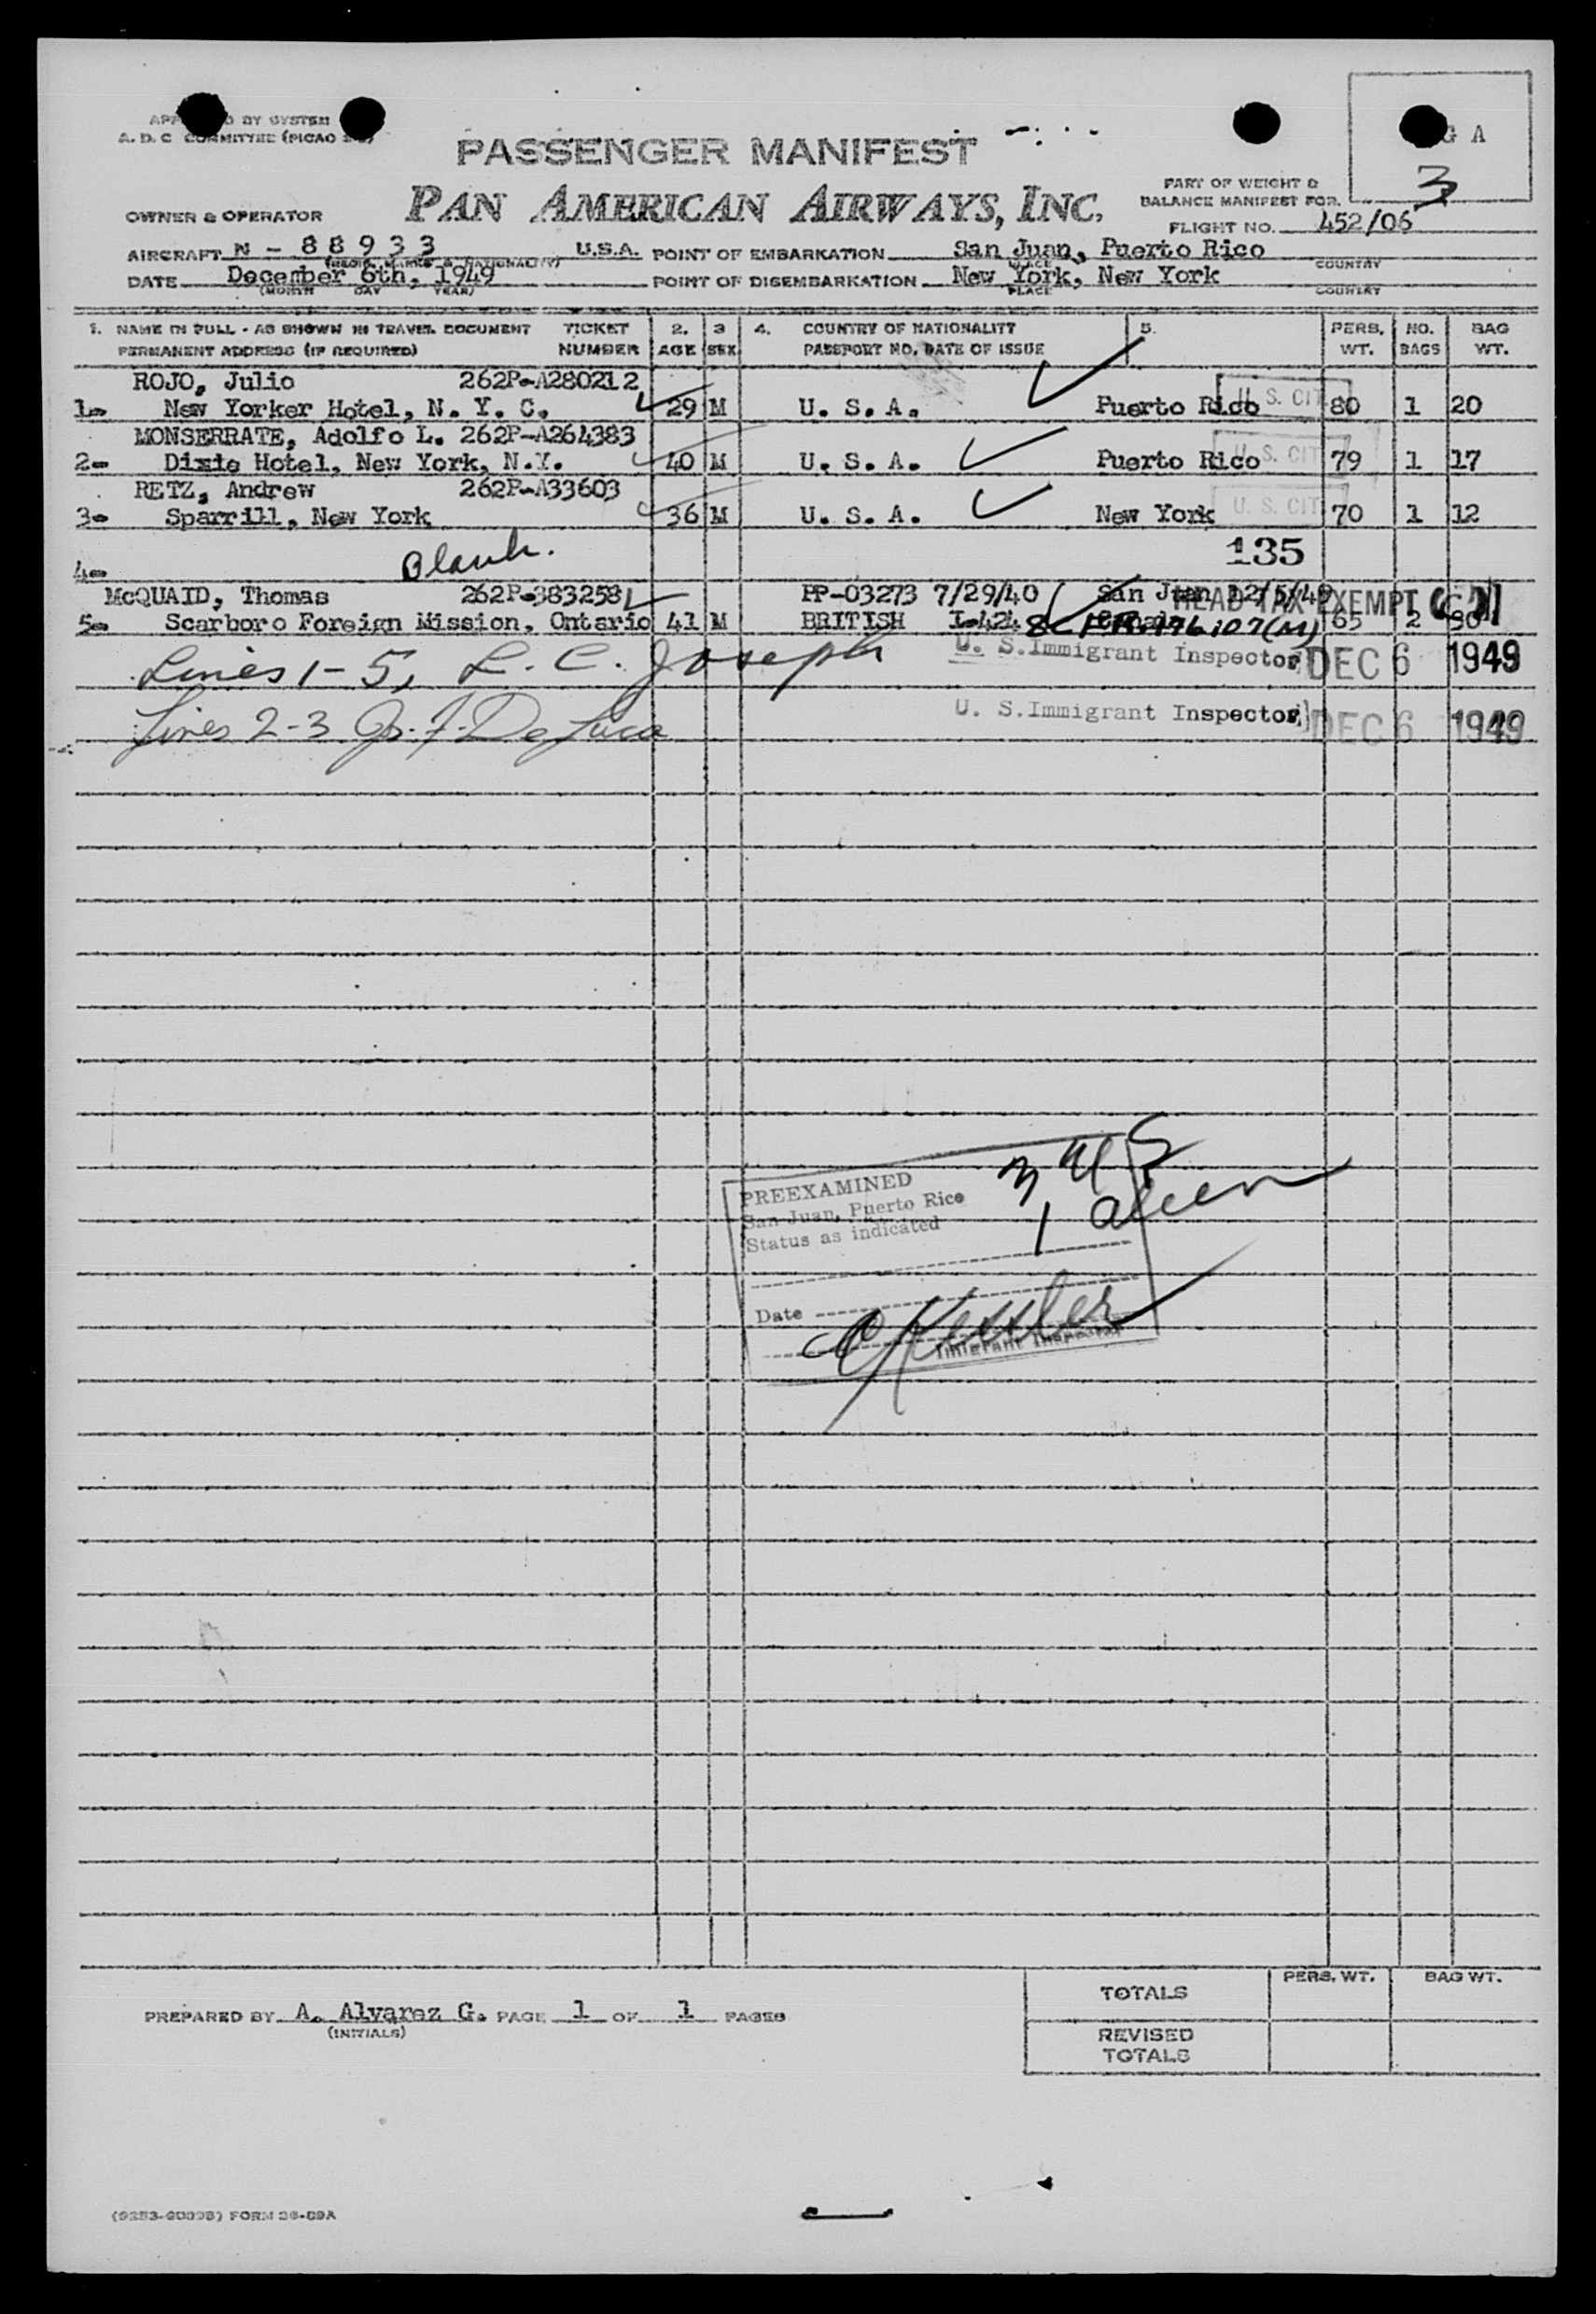 BY SYSTEM G A
A. D. C COMMITTEE (PICAO
PASSENGER MANIFEST
3
PART OF WEIGHT &
BALANCE MANIFEST FOR
PAN AMERICAN AIRWAYS, INC.
OWNER & OPERATOR FLIGHT NO. 452/06
AIRCRAFT N - 88933 U.S.A. POINT OF EMBARKATION San Juan, Puerto Rico
(REGIS. MARKS & NATIONALITY) PLACE COUNTRY
DATE December 6th, 1949 POINT OF DISEMBARKATION New York, New York
(MONTH DAY YEAR) PLACE COUNTRY
1. NAME IN FULL - AS SHOWN IN TRAVEL DOCUMENT TICKET 2. 3 4. COUNTRY OF NATIONALITY 5. PERS. NO. BAG
PERMANENT ADDRESS (IF REQUIRED) NUMBER AGE SEX PASSPORT NO. DATE OF ISSUE WT. BAGS WT.
ROJO, Julio 262P-A280212
1- New Yorker Hotel, N. Y. C. 29 M U. S. A. Puerto Rico U. S. CIT 80 1 20
MONSERRATE, Adolfo L. 262P-A264383
2- Dixie Hotel, New York, N.Y. 40 M U. S. A. Puerto Rico U. S. CIT 79 1 17
RETZ, Andrew 262P-A33603
3- Sparrill, New York 36 M U. S. A. New York U. S. CIT 70 1 12
135
4- Blank.
McQUAID, Thomas 262P-383258 PP-03273 7/29/40 San Juan 12/5/49 HEAD TAX EXEMPT
5- Scarboro Foreign Mission, Ontario 41 M BRITISH I-424 65 2
Lines 1-5, L. C. Joseph U. S. Immigrant Inspector DEC 6 1949
Lines 2-3 De Luca U. S. Immigrant Inspector DEC 6 1949
PREEXAMINED 3 US
San Juan, Puerto Rico
Status as indicated 1 alien
Date
Kessler
Immigrant Inspector
PERS. WT. BAG WT.
TOTALS
PREPARED BY A. Alvarez G. PAGE 1 OF 1 PAGES
(INITIALS)
REVISED
TOTALS
FORM 26-89A